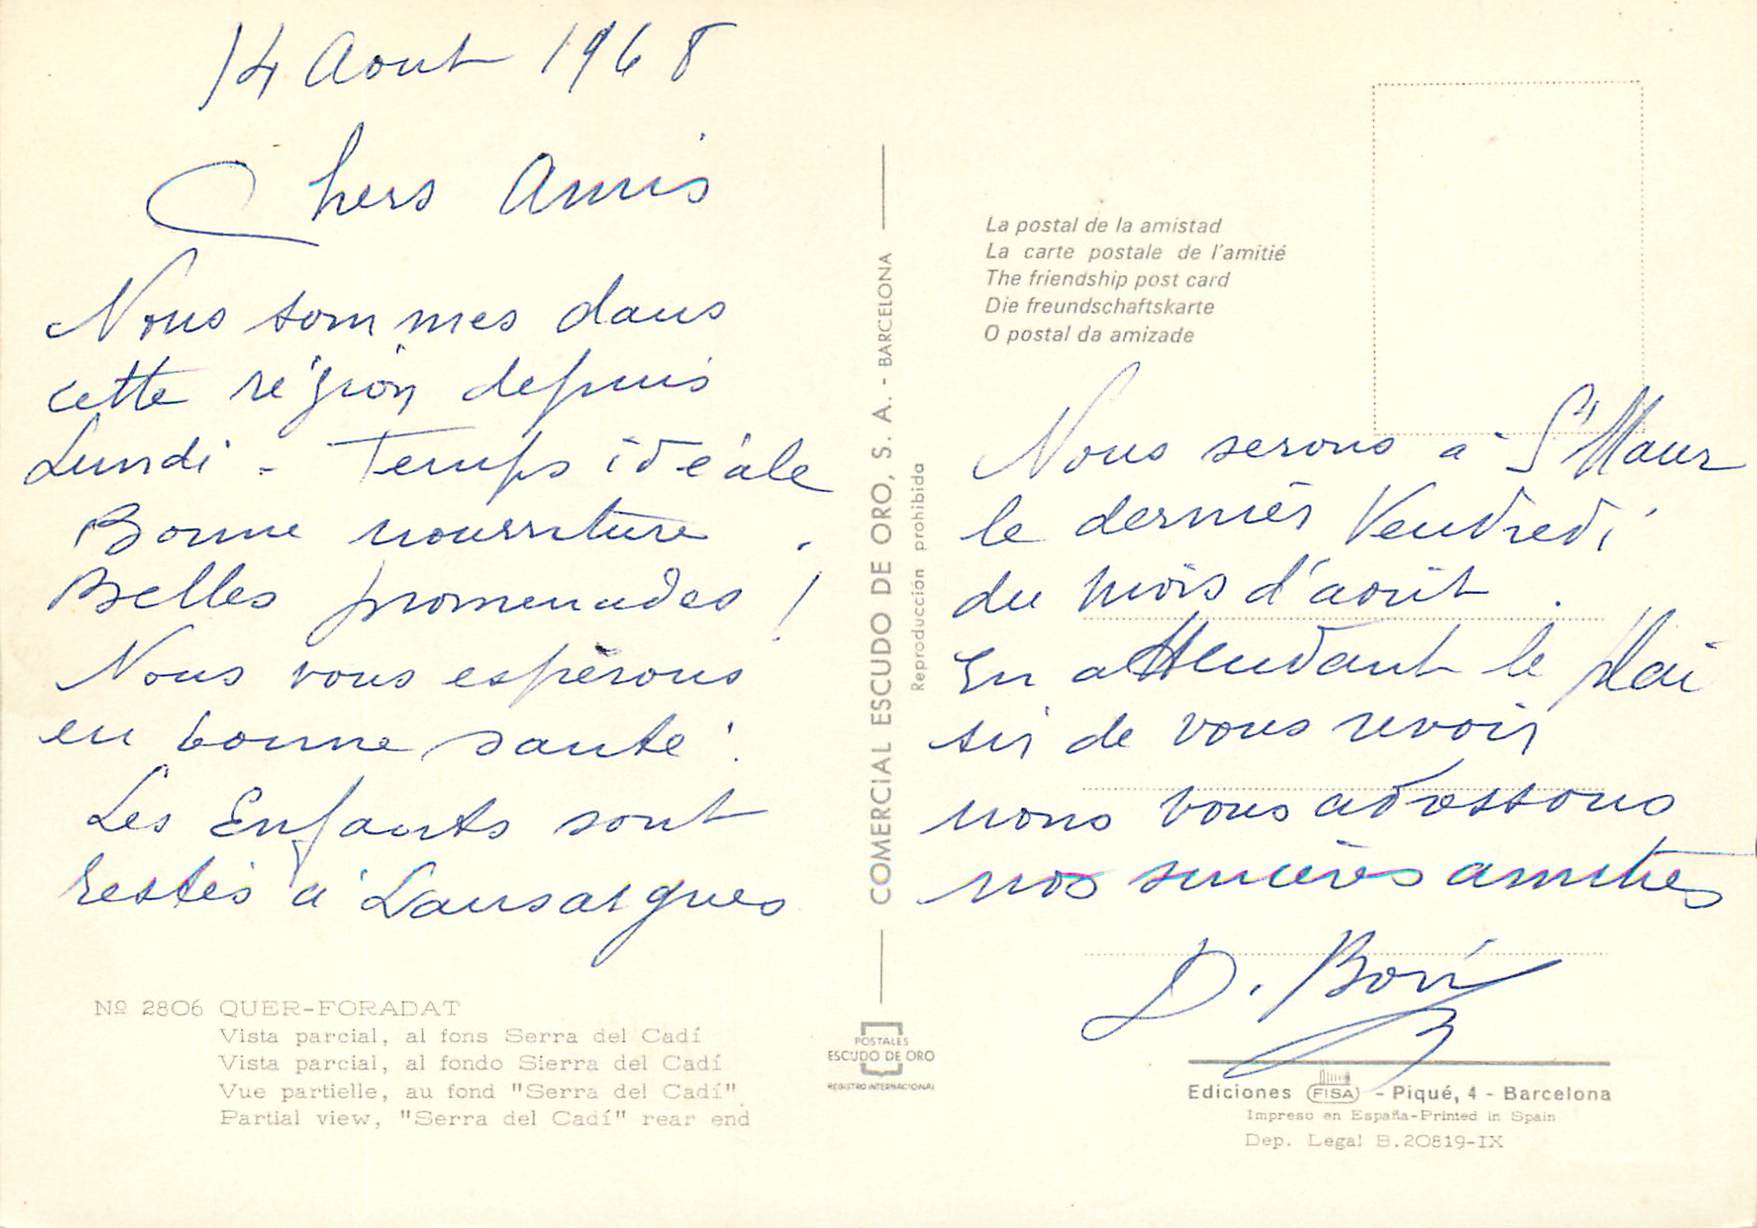 14 Aout 1968
Chers Amis
Nous sommes dans
cette région depuis
Lundi - Temps idéale
Bonne nourriture.
Belles promenades !
Nous vous espérons
en bonne santé.
Les Enfants sont
restés à Lansargues
Nº 2806 QUER-FORADAT
Vista parcial, al fons Serra del Cadí
Vista parcial, al fondo Sierra del Cadí
Vue partielle, au fond "Serra del Cadí"
Partial view, "Serra del Cadí" rear end
COMERCIAL ESCUDO DE ORO, S. A. - BARCELONA
Reproducción prohibida
POSTALES
ESCUDO DE ORO
REGISTRO INTERNACIONAL
La postal de la amistad
La carte postale de l'amitié
The friendship post card
Die freundschaftskarte
O postal da amizade
Nous serons à St Maur
le dernier Vendredi
du mois d'août.
En attendant le plai
sir de vous revoir
nous vous adressons
nos sincères amitiés
D.
Ediciones FISA - Piqué, 4 - Barcelona
Impreso en España-Printed in Spain
Dep. Legal B.20819-IX